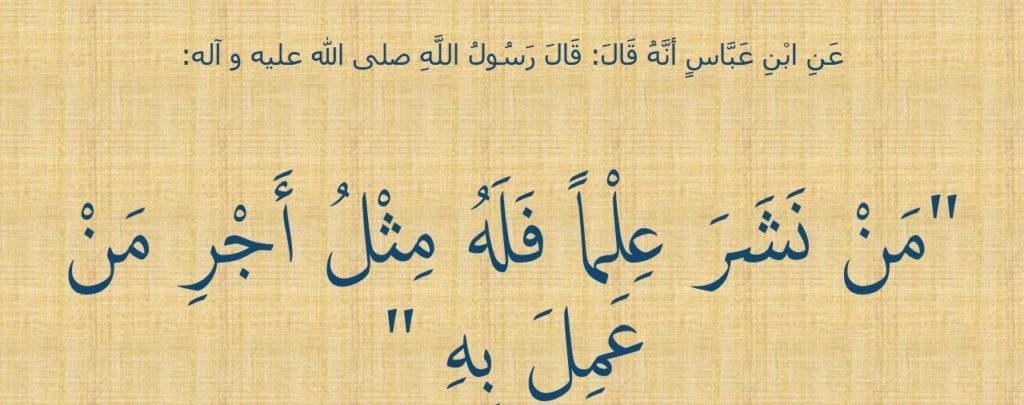 عَنِ ابْنِ عَبَّاسٍ أنَّهُ قَالَ: قَالَ رَسُولُ اللَّهِ صلى الله عليه و آله:
"مَنْ نَشَرَ عِلْماً فَلَهُ مِثْلُ أَجْرِ مَنْ
عَمِلَ بِهِ "